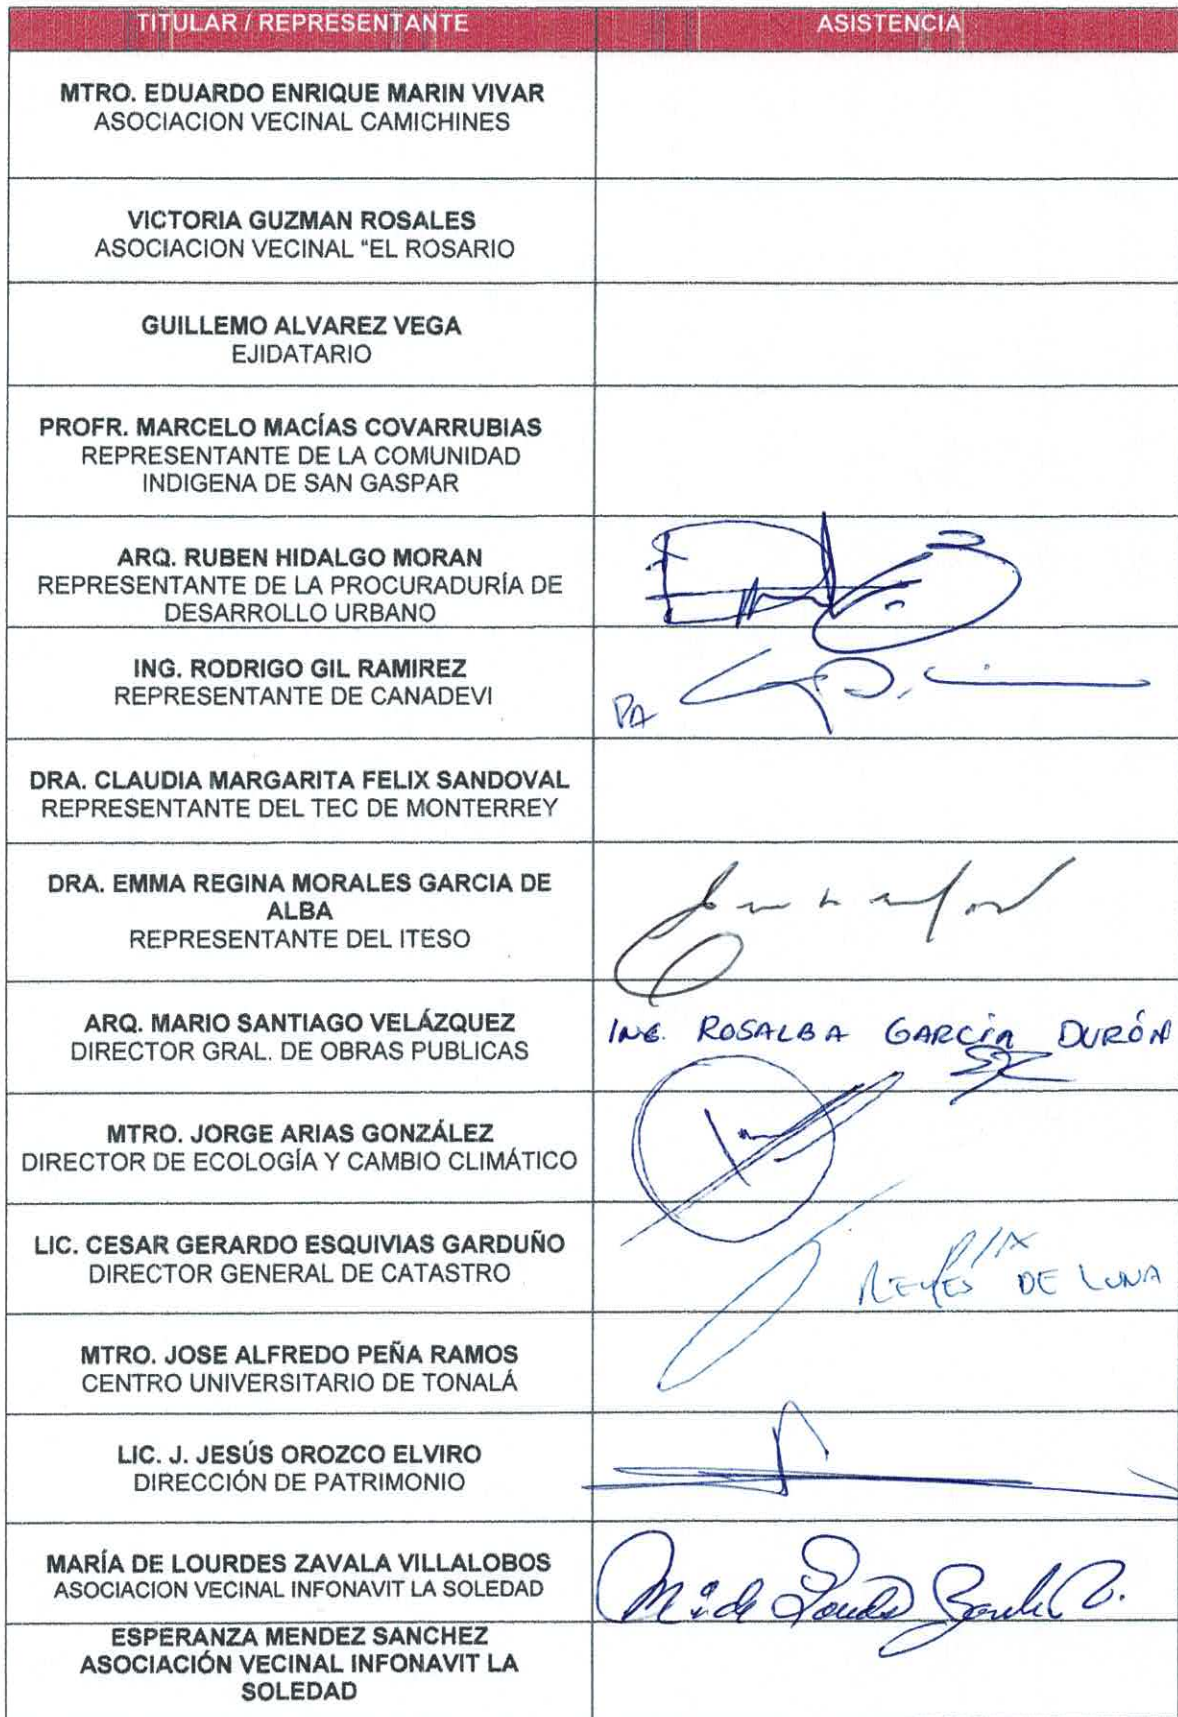 TITULAR / REPRESENTANTE
ASISTENCIA
MTRO. EDUARDO ENRIQUE MARIN VIVAR
ASOCIACION VECINAL CAMICHINES
VICTORIA GUZMAN ROSALES
ASOCIACION VECINAL "EL ROSARIO
GUILLEMO ALVAREZ VEGA
EJIDATARIO
PROFR. MARCELO MACÍAS COVARRUBIAS
REPRESENTANTE DE LA COMUNIDAD
INDIGENA DE SAN GASPAR
ARQ. RUBEN HIDALGO MORAN
REPRESENTANTE DE LA PROCURADURÍA DE
DESARROLLO URBANO
ING. RODRIGO GIL RAMIREZ
REPRESENTANTE DE CANADEVI
PA
DRA. CLAUDIA MARGARITA FELIX SANDOVAL
REPRESENTANTE DEL TEC DE MONTERREY
DRA. EMMA REGINA MORALES GARCIA DE
ALBA
REPRESENTANTE DEL ITESO
ARQ. MARIO SANTIAGO VELÁZQUEZ
DIRECTOR GRAL. DE OBRAS PUBLICAS
ING. ROSALBA GARCÍA DURÓN
MTRO. JORGE ARIAS GONZÁLEZ
DIRECTOR DE ECOLOGÍA Y CAMBIO CLIMÁTICO
LIC. CESAR GERARDO ESQUIVIAS GARDUÑO
DIRECTOR GENERAL DE CATASTRO
P/A
REYES DE LUNA
MTRO. JOSE ALFREDO PEÑA RAMOS
CENTRO UNIVERSITARIO DE TONALÁ
LIC. J. JESÚS OROZCO ELVIRO
DIRECCIÓN DE PATRIMONIO
MARÍA DE LOURDES ZAVALA VILLALOBOS
ASOCIACION VECINAL INFONAVIT LA SOLEDAD
Ma de Lourdes Zavala V.
ESPERANZA MENDEZ SANCHEZ
ASOCIACIÓN VECINAL INFONAVIT LA
SOLEDAD